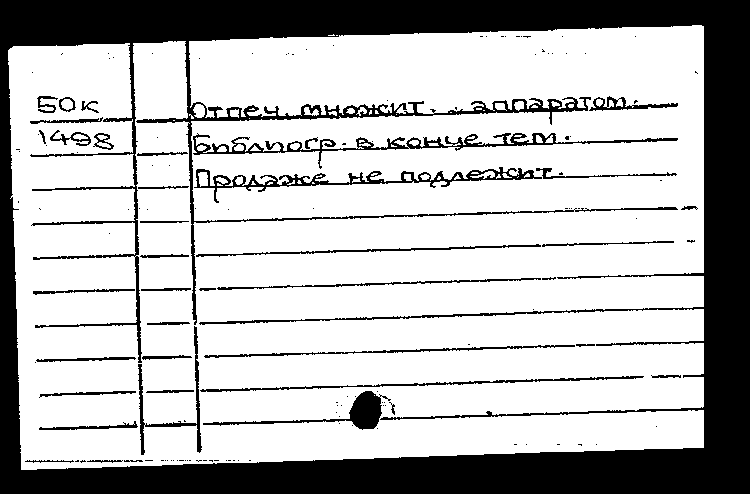 БОК Отпеч. множит. аппаратом.
1498 Библиогр. в конце тем.
Продаже не подлежит.